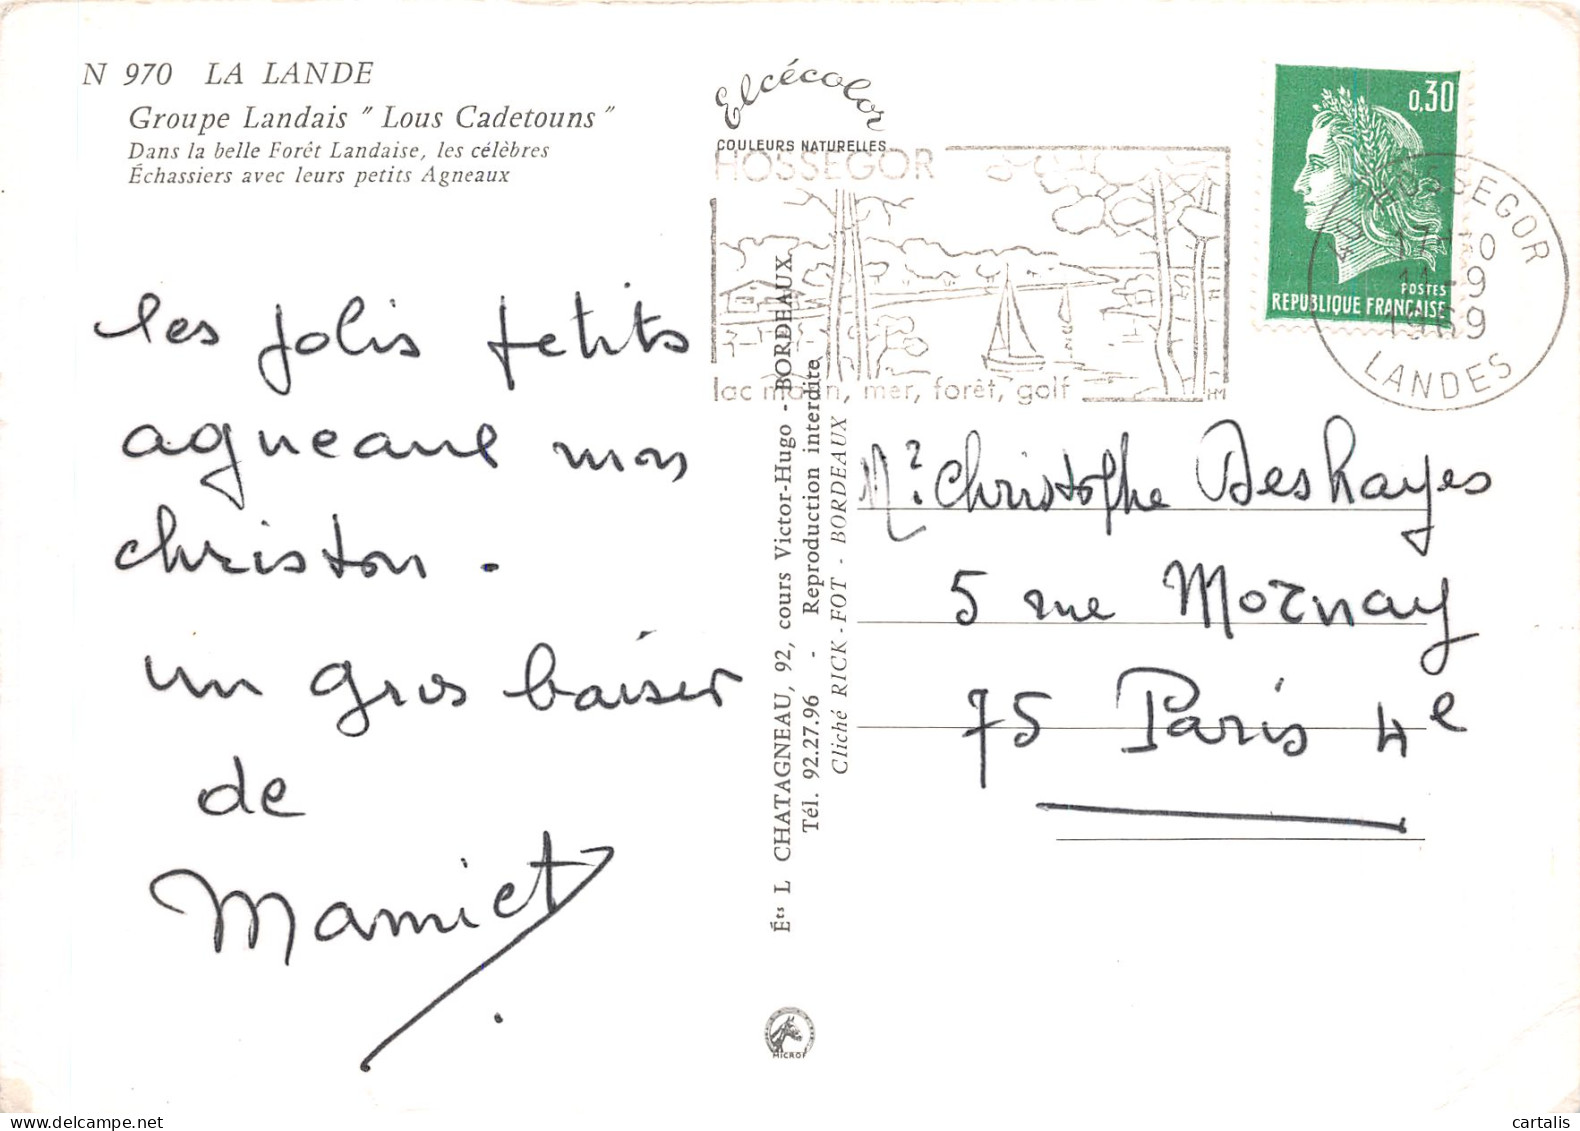 N 970 LA LANDE
Groupe Landais " Lous Cadetouns "
Dans la belle Forêt Landaise, les célèbres
Échassiers avec leurs petits Agneaux
les jolis petits
agneaux mon
christou.
un gros baiser
de
Mamiet
Elcécolor
COULEURS NATURELLES
HOSSEGOR
lac marin, mer, forêt, golf
0,30
POSTES
REPUBLIQUE FRANÇAISE
HOSSEGOR
11-9
1969
LANDES
Éts L CHATAGNEAU, 92, cours Victor-Hugo - BORDEAUX
Tél. 92.27.96 - Reproduction interdite
Cliché RICK-FOT - BORDEAUX
Mr. Christophe Deshayes
5 rue Mornay
75 Paris 4e
MICROF
delcampe.net
cartalis